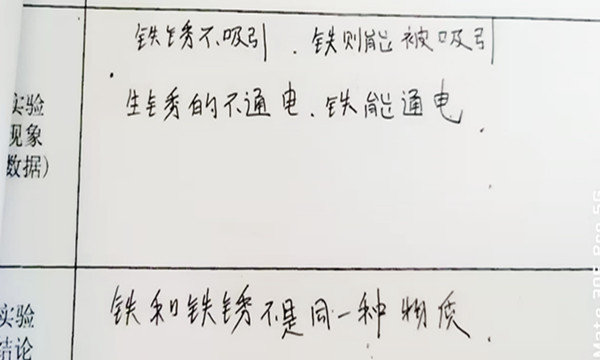 铁锈不吸引、铁则能被吸引
生锈的不通电、铁能通电
实验
现象
数据)
铁和铁锈不是同一种物质
实验
结论
Mate 30E Pro 5G